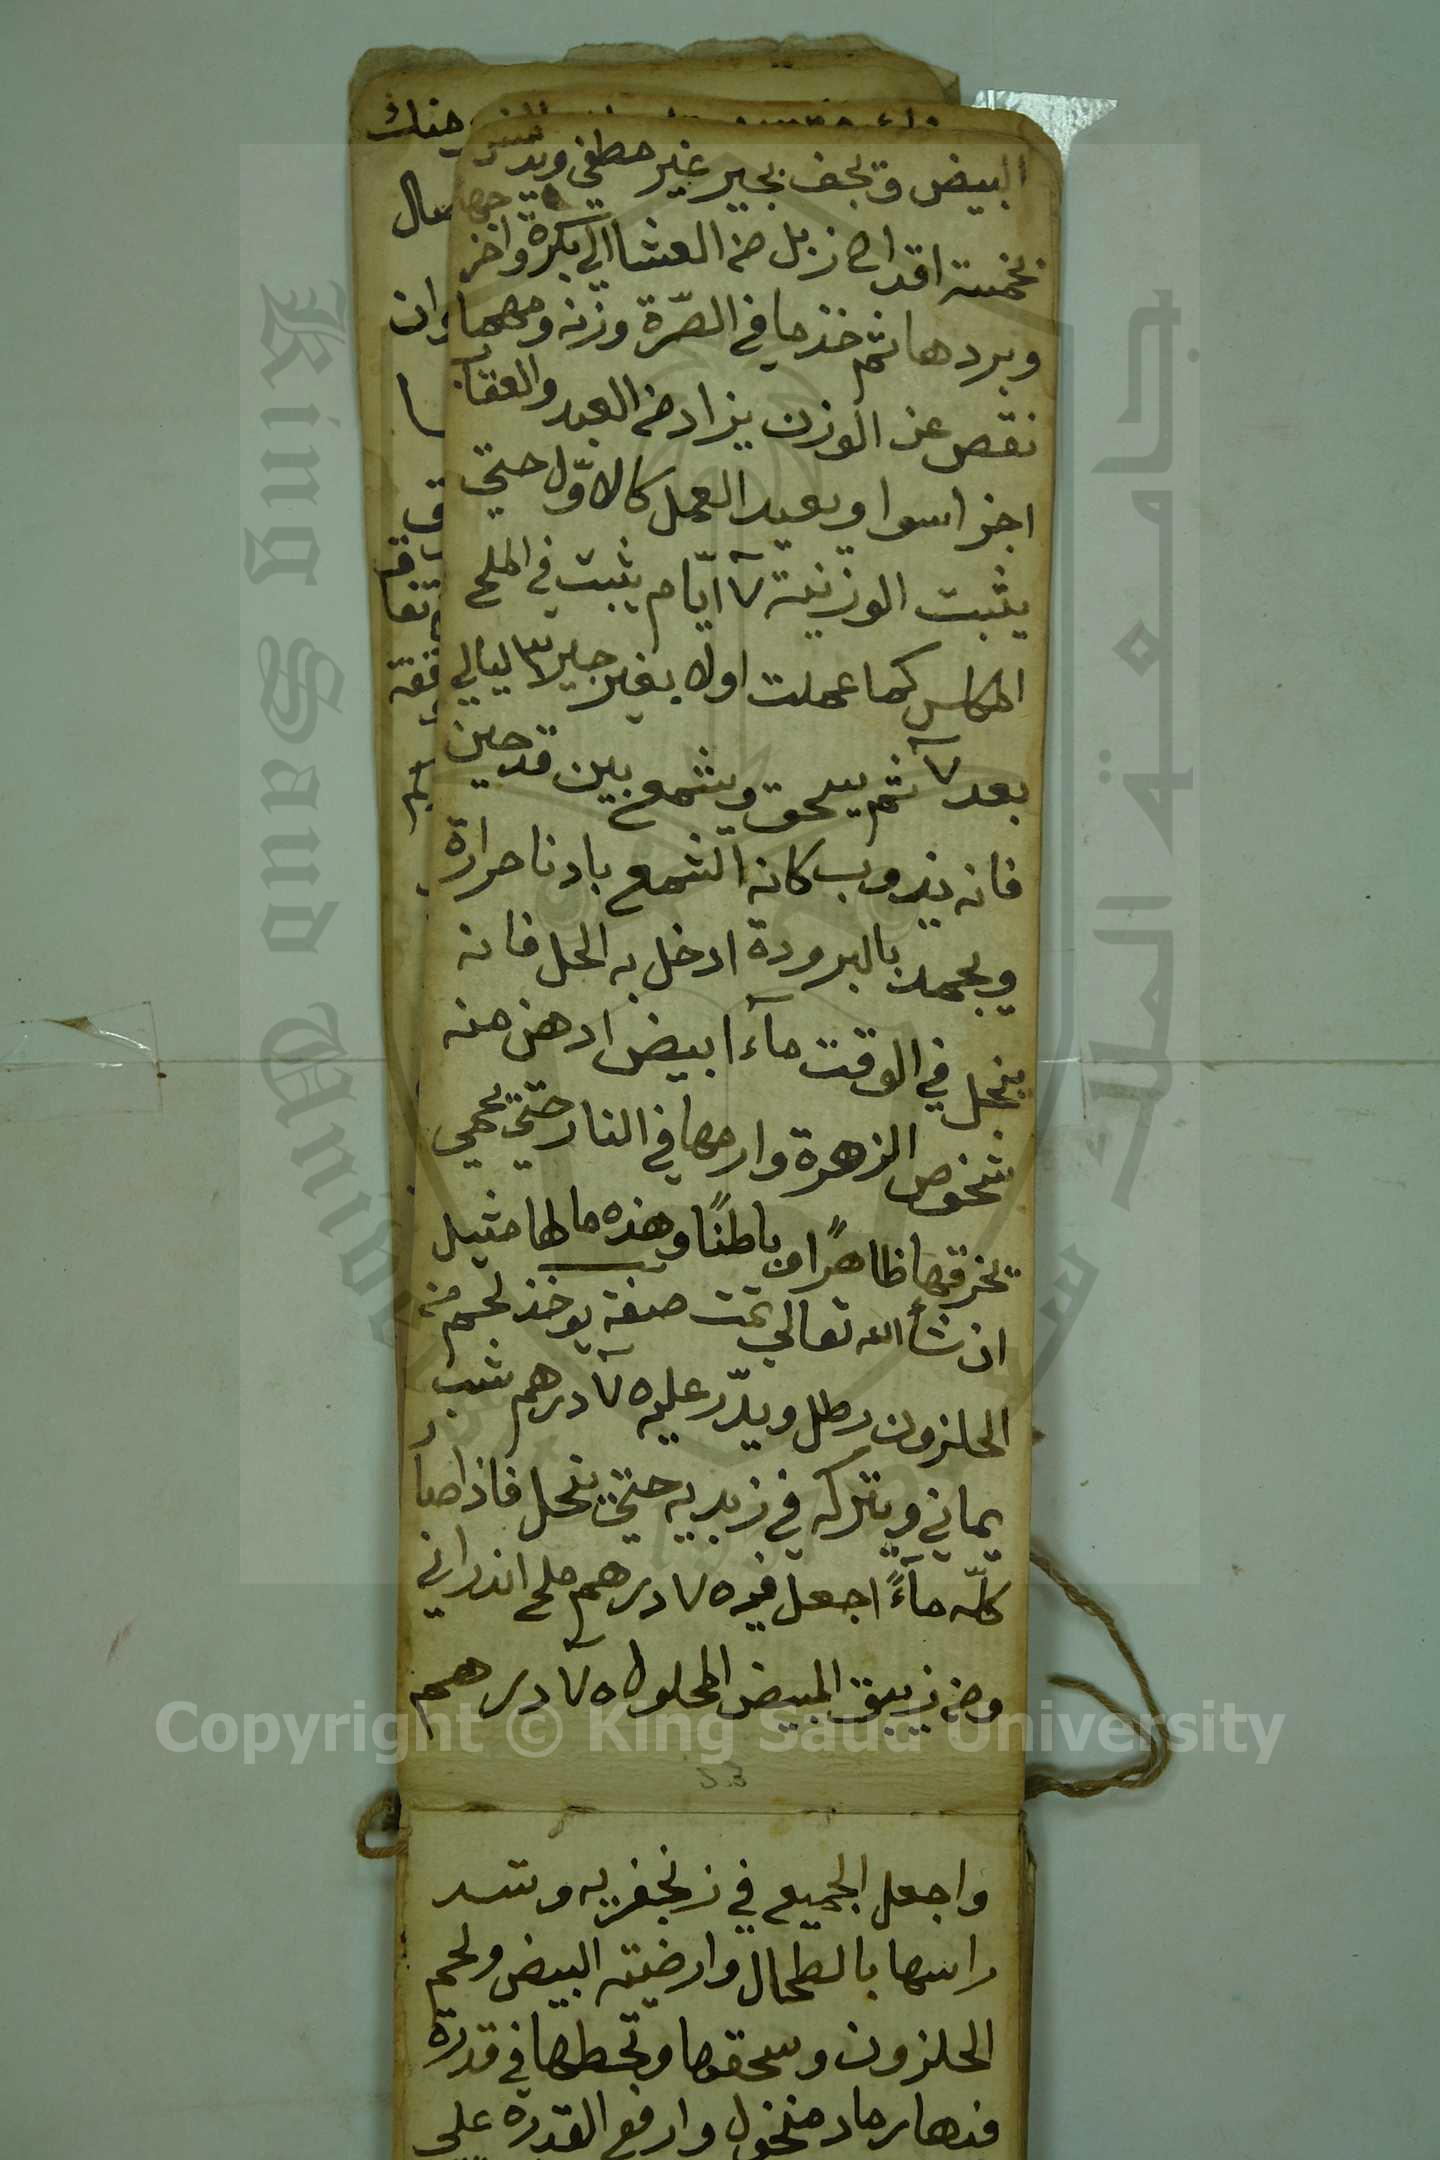 البيض وتجف بجير غير مطفي ويدتتر
بخمسة اقداح زبل من العشا الي بكرة واخر
وبردها ثم خذ ما في الصرّة وزنه ومهما
نقص عن الوزن يزاد من العبد والعقاب
اجزا سوا ويعيد العمل كالاوّل حتي
يثبت الوزنية ٧ ايّام يثبت في الملح
المكلس كما عملت اولا بغير جير ٣ ليالي
بعد ٧ ثم يسحق ويشمع بين قدحين
فانه يذوب كانه الشمع بادنا حرارة
ويجمد بالبرودة ادخل به الحل فانه
ينحل في الوقت مآء ابيض ادهن منه
شخوص الزهرة وارمها في النار حتي يحمي
يخرقها ظاهرًا وباطنًا وهذه مالها مثيل
ان شأ الله تعالي تمت صفة يوخذ لحم من
الحلزون رطل ويدّر عليه ٧ درهم شب
يماني ويتركه في زبديه حتي ينحل فاذا صا
كلّه مآءً اجعل فيه ٧ درهم ملح اندراني
ومن زيبق المبيض المحلول ٧ درهم
واجعل الجميع في زنجفريه وتسد
راسها بالطحال وارضيته البيض ولحم
الحلزون وسحقها وتحطها في قدرة
فيها رماد منخول وارفع القدره علي
Copyright © King Saud University
King Saud University
جامعة الملك سعود